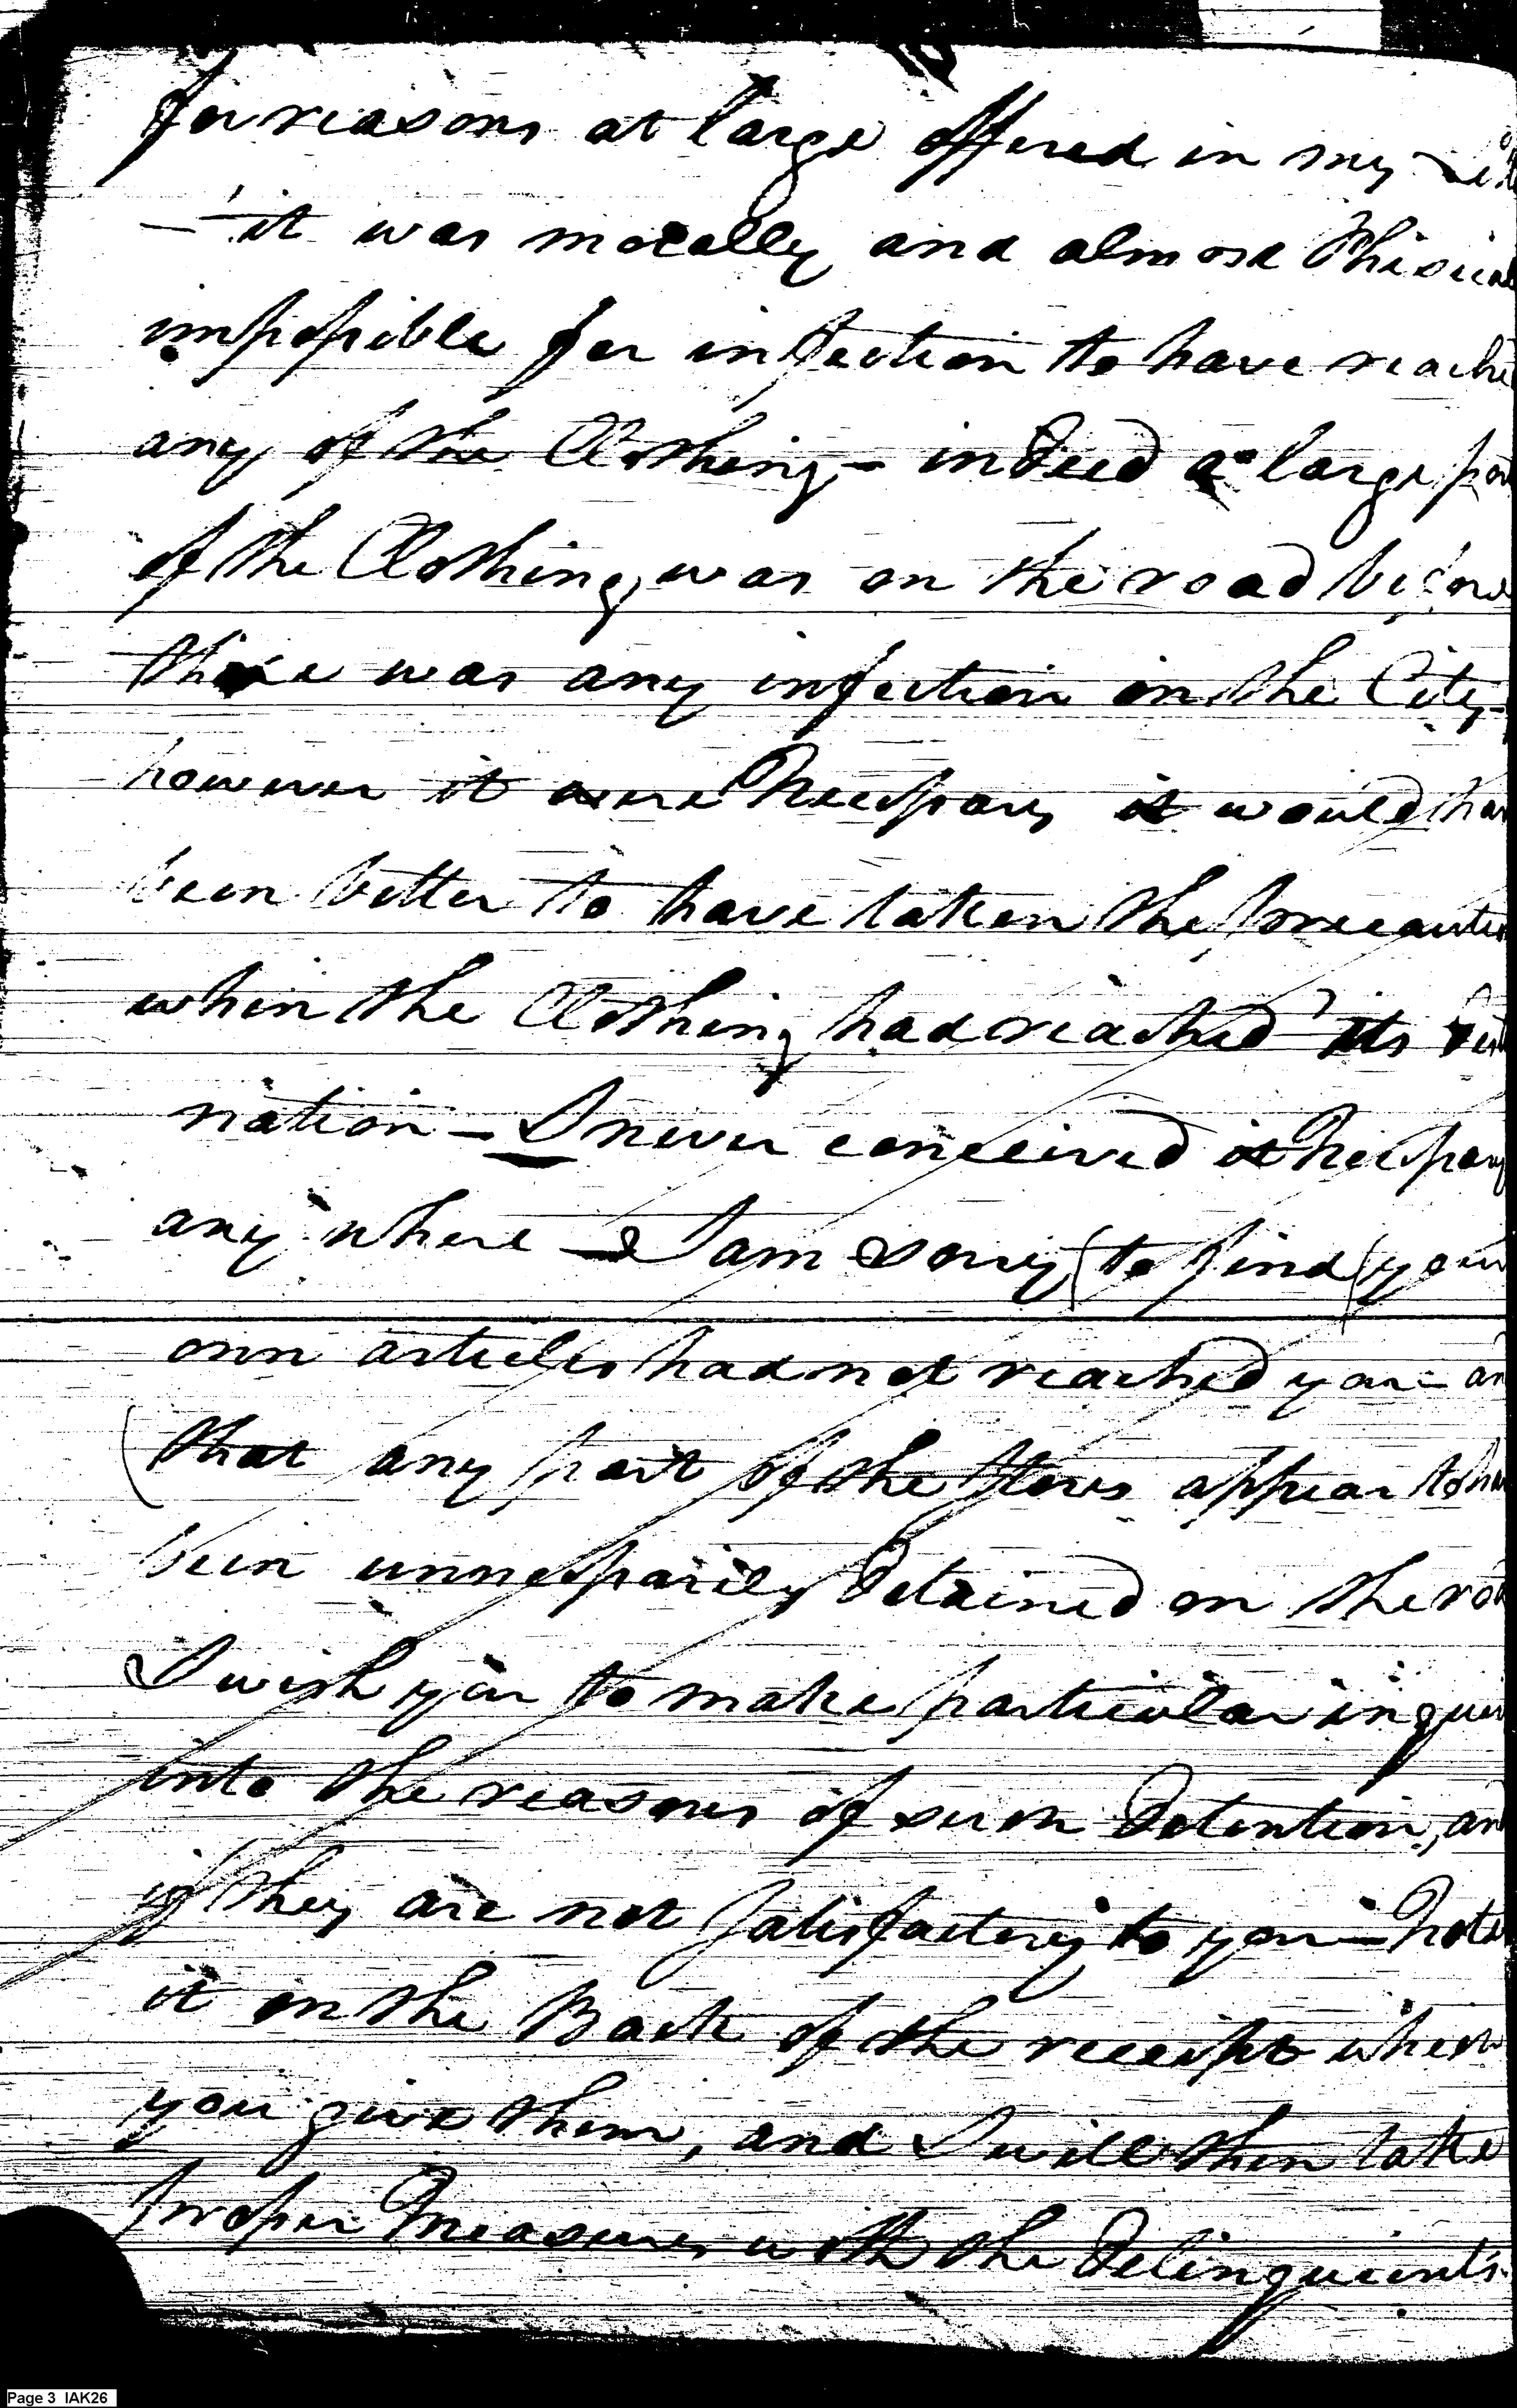 for reasons at large offered in my
— it was morally and almost Phisical
impossible for infection to have reache
any of the Clothing — indeed a large par
of the Clothing, was on the road before
there was any infection in the City —
however it were Necessary it would hav
been better to have taken the precautio
when the Clothing had reached its Desti
nation — I never conceived it Necessary
any where — I am sorry (to find) your
own articles had not reached you — an
(that any part of the Stores appear to hav
been unnessarily Detained on the roa
I wish you to make particular inquir
into the reasons of such Detention, an
if they are not Satisfactory to you — Note
it on the Back of the receipt when
you give them, and I will then take
proper Measures with the Delinquients.
Page 3 IAK26